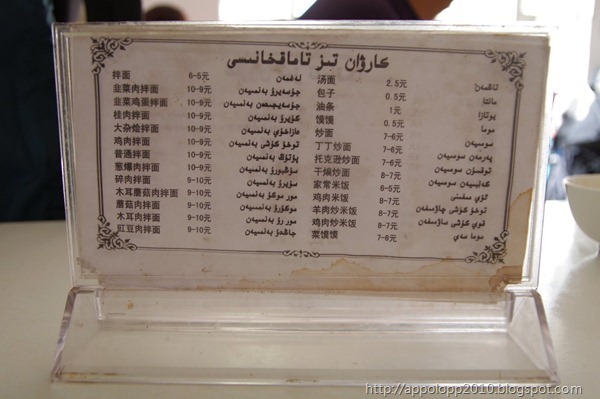 كارۋان تىز تاماقخانىسى
拌面 6-5元 لەغمەن
韭菜肉拌面 10-9元 جۈسەيرۇ بەنسىيەن
韭菜鸡蛋拌面 10-9元 جۈسەيجىسەن بەنسىيەن
桂肉拌面 10-9元 گۈيرۇ بەنسىيەن
大杂烩拌面 10-9元 دازاخۇي بەنسىيەن
鸡肉拌面 10-9元 توخۇ گۆشى بەنسىيەن
普通拌面 10-9元 پۇتۇڭ بەنسىيەن
葱爆肉拌面 10-9元 سۇڭبورۇ بەنسىيەن
碎肉拌面 9-10元 سۇيرۇ بەنسىيەن
木耳蘑菇肉拌面 9-10元 مور موگۇ بەنسىيەن
蘑菇肉拌面 9-10元 موگۇرۇ بەنسىيەن
木耳肉拌面 9-10元 مور رۇ بەنسىيەن
豇豆肉拌面 9-10元 جاڭدۇ بەنسىيەن
汤面 2.5元
包子 0.5元 مانتا
油条 1元 يوتازا
馍馍 0.5元 موما
炒面 7-6元 سوسىيەن
丁丁炒面 7-6元 پەرمەن سوسىيەن
托克逊炒面 7-6元 توقسۇن سوسىيەن
干煸炒面 8-7元 سوسىيەن
家常米饭 6-5元 ئۆي
鸡肉米饭 8-7元 توخۇ گۆشى
羊肉炒米饭 8-7元 قوي گۆشى
鸡肉炒米饭 8-7元
菜馍馍 7-6元 موما سەي
http://appolopp2010.blogspot.com